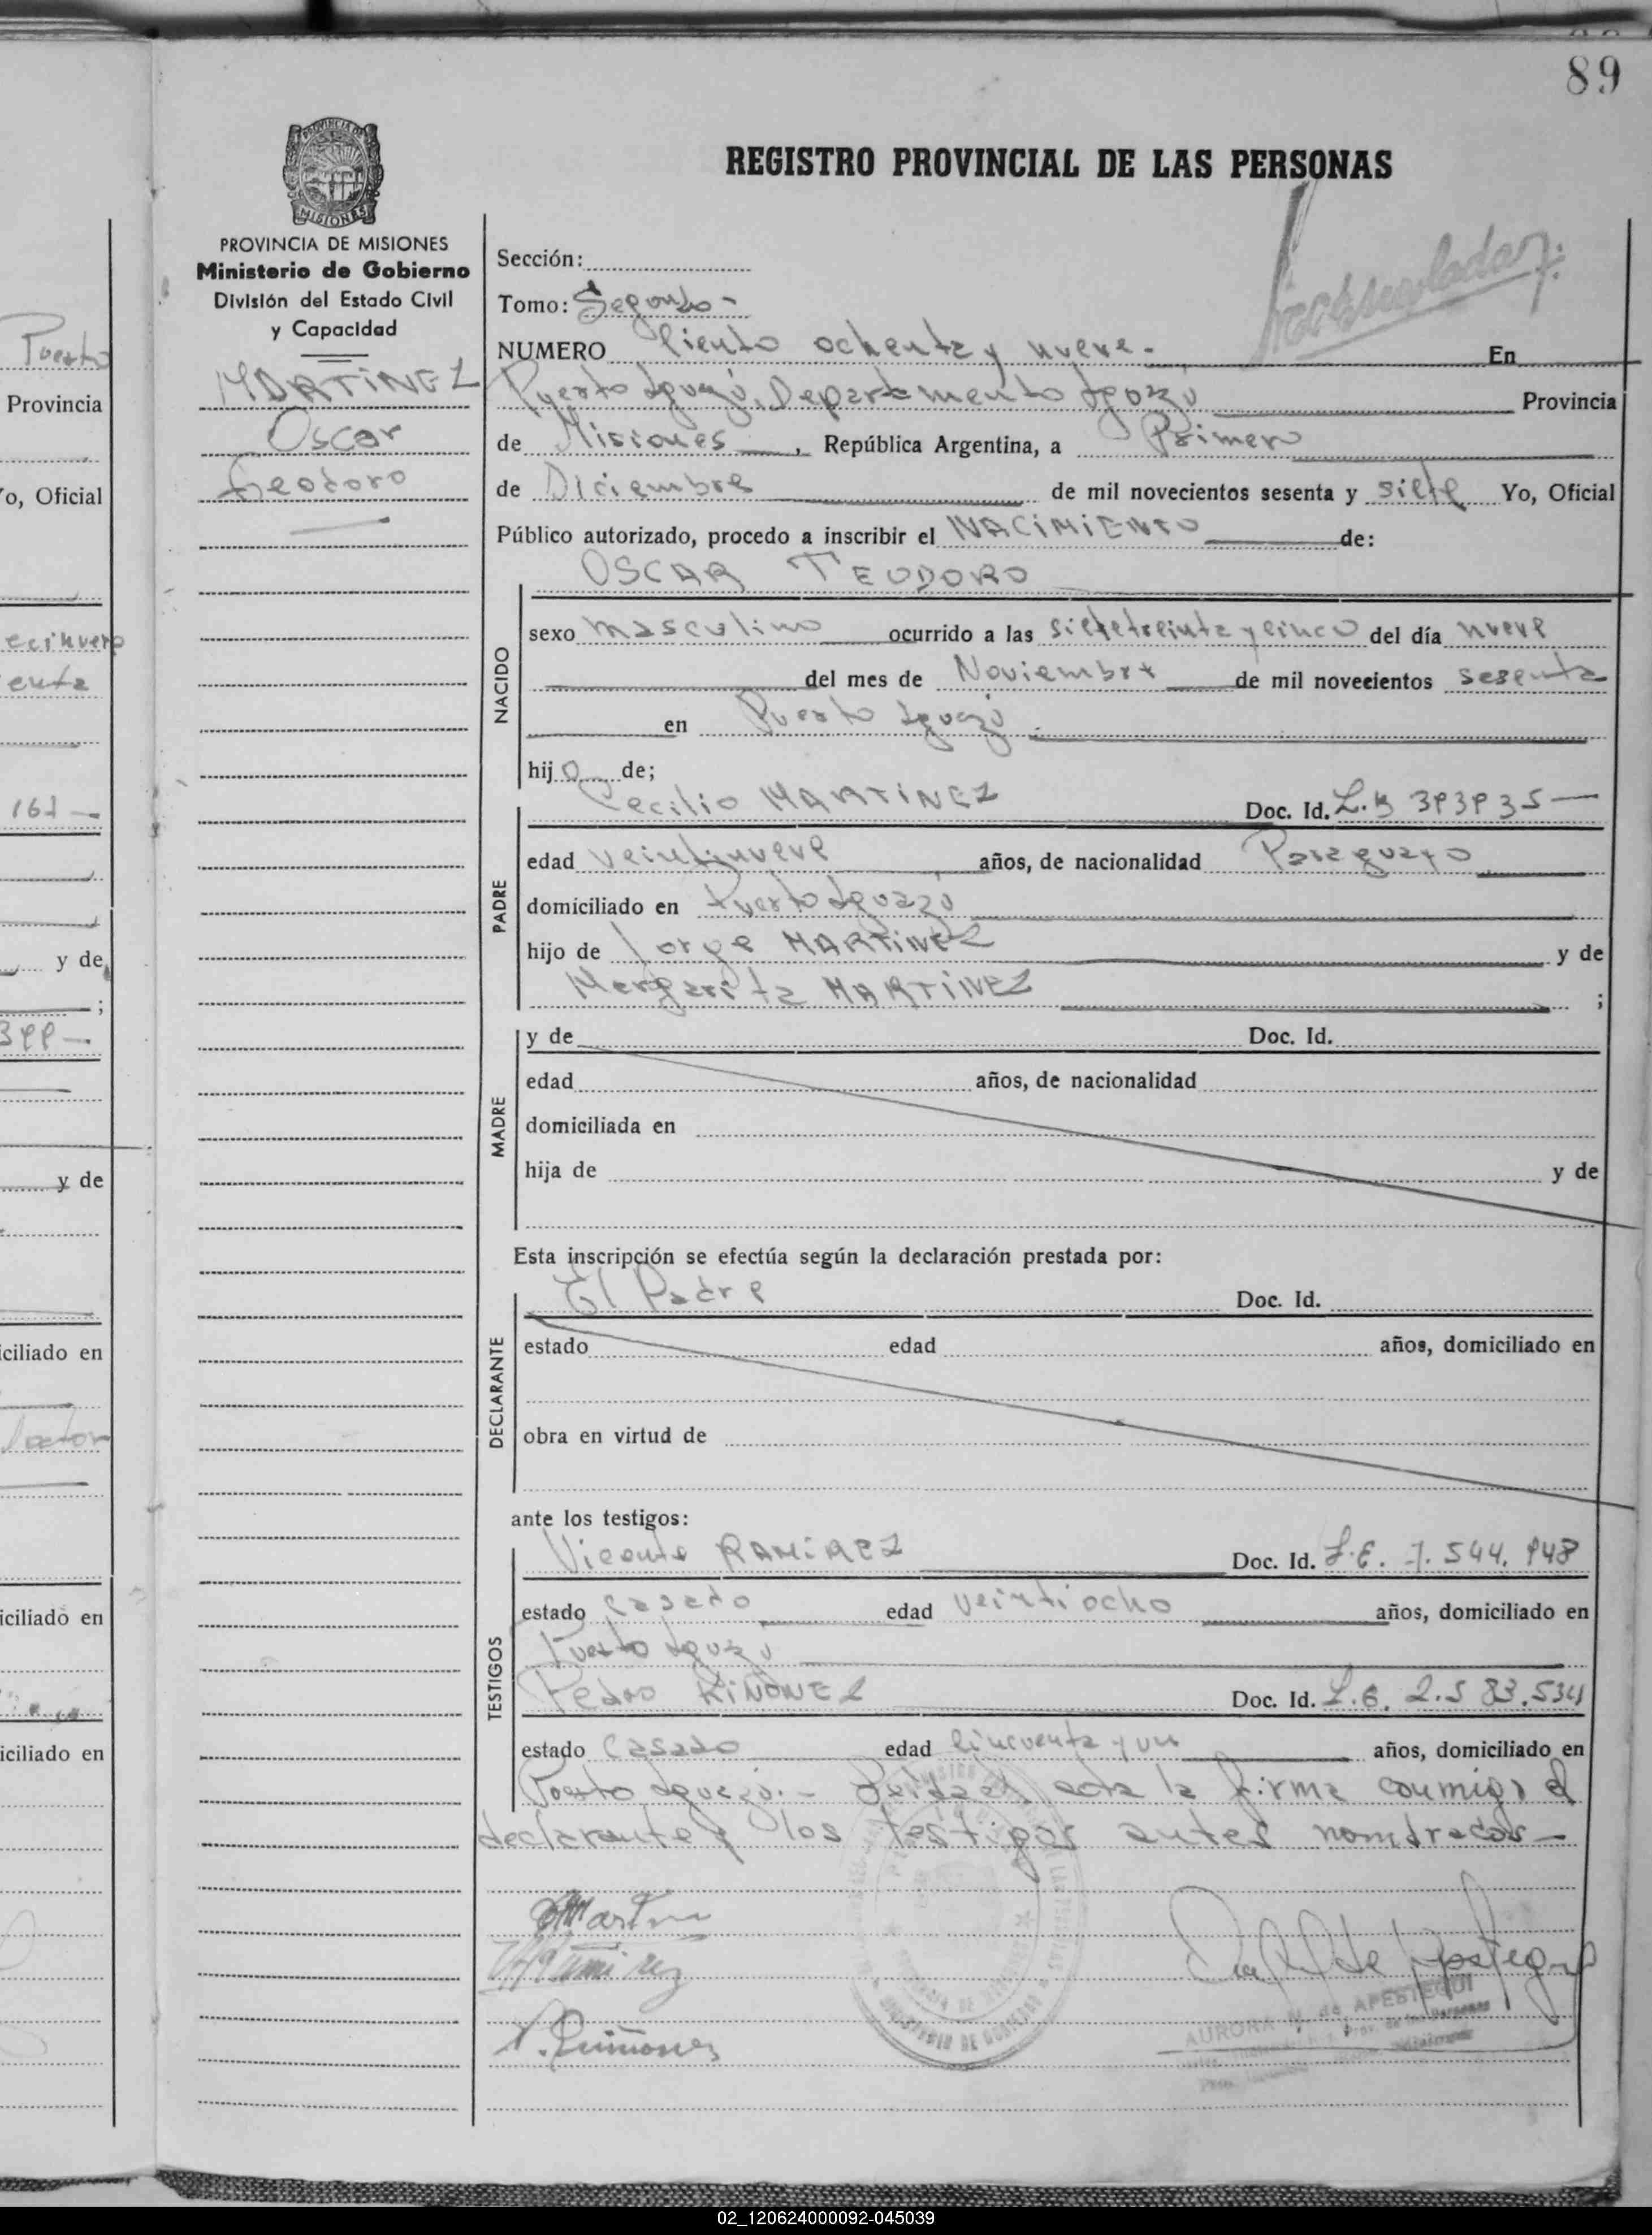 89
REGISTRO PROVINCIAL DE LAS PERSONAS
PROVINCIA DE MISIONES
Ministerio de Gobierno
División del Estado Civil
y Capacidad
MARTINEZ
Oscar
Teodoro
Sección:
Tomo: Segundo -
NUMERO Ciento ochenta y nueve.- En
Puerto Iguazú, Departamento Iguazú Provincia
de Misiones, República Argentina, a Primero
de Diciembre de mil novecientos sesenta y siete Yo, Oficial
Público autorizado, procedo a inscribir el NACIMIENTO de:
OSCAR TEODORO
NACIDO
sexo masculino ocurrido a las siete treinta y cinco del día nueve
del mes de Noviembre de mil novecientos sesenta
en Puerto Iguazú.
hijo de;
Cecilio MARTINEZ Doc. Id.
PADRE
edad veintinueve años, de nacionalidad Paraguayo
domiciliado en Puerto Iguazú
hijo de Jorge MARTINEZ y de
Margarita MARTINEZ ;
MADRE
y de Doc. Id.
edad años, de nacionalidad
domiciliada en
hija de y de
Esta inscripción se efectúa según la declaración prestada por:
El Padre Doc. Id.
DECLARANTE
estado edad años, domiciliado en
obra en virtud de
ante los testigos:
TESTIGOS
Vicente RAMIREZ Doc. Id. L.E. 7.544.948
estado Casado edad veintiocho años, domiciliado en
Puerto Iguazú
Pedro KIÑONEZ Doc. Id. L.E. 2.583.534
estado Casado edad Cincuenta y un años, domiciliado en
Puerto Iguazú.- Leída el acta la firma conmigo el
declarante y los testigos antes nombrados-
AURORA N. de APESTEGUI
MINISTERIO DE GOBIERNO
Puerto
Provincia
Yo, Oficial
161 -
y de
;
y de
iciliado en
iciliado en
iciliado en
02_120624000092-045039